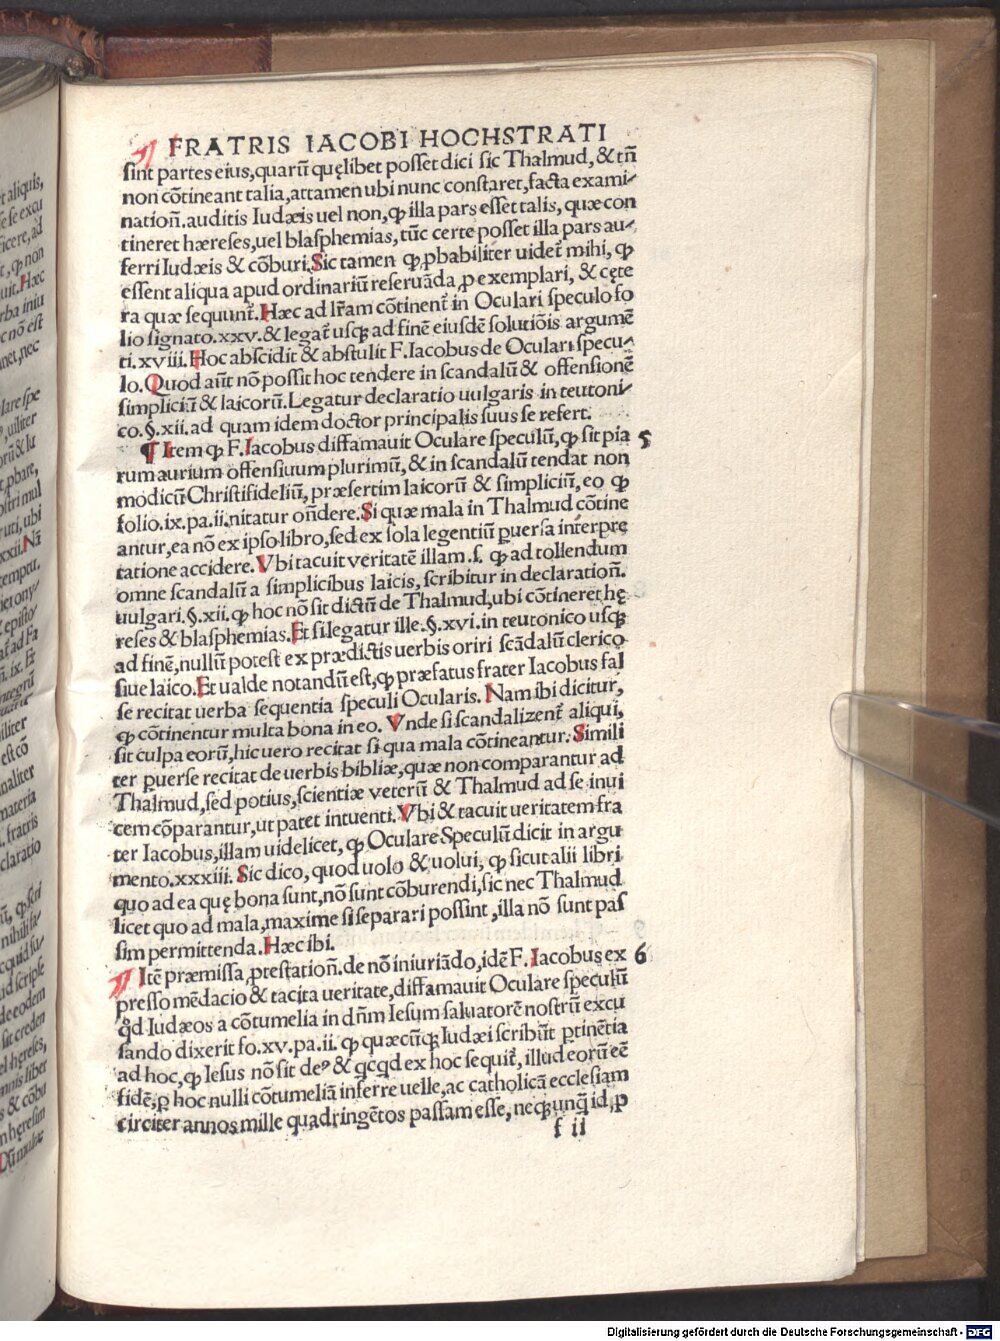 FRATRIS IACOBI HOCHSTRATI
sint partes eius, quarū quęlibet posset dici sic Thalmud, & tñ
non cōtineant talia, attamen ubi nunc constaret, facta exami-
nationͫ. auditis Iudæis uel non, ꝙ illa pars esset talis, quæ con
tineret hæreses, uel blasphemias, tūc certe posset illa pars au-
ferri Iudæis & cōburi. Sic tamen ꝙ ꝓbabiliter uidet̄ mihi, ꝙ
essent aliqua apud ordinariū reseruāda, ꝓ exemplari, & cęte
ra quæ sequunt̄. Hæc ad lr̄am cōtinent̄ in Oculari speculo fo
lio signato. xxv. & legat̄ usqꝫ ad finē eiusdē solutiōis argumē
ti. xviii. Hoc abscidit & abstulit F. Iacobus de Oculari specu-
lo. Quod aūt nō possit hoc tendere in scandalū & offensionē
simpliciū & laicorū. Legatur declaratio uulgaris in teutoni-
co. §. xii. ad quam idem doctor principalis suus se refert.
¶ Item ꝙ F. Iacobus diffamauit Oculare speculū, ꝙ sit pia 5
rum aurium offensiuum plurimū, & in scandalū tendat non
modicū Christifideliū, præsertim laicorū & simpliciū, eo ꝙ
folio. ix. pa. ii. nitatur oñdere. Si quæ mala in Thalmud cōtine
antur, ea nō ex ipso libro, sed ex sola legentiū ꝑuersa interprę
tatione accidere. Vbi tacuit veritatē illam. s. ꝙ ad tollendum
omne scandalū a simplicibus laicis, scribitur in declarationͫ.
uulgari. §. xii. ꝙ hoc nō sit dictū de Thalmud, ubi cōtineret hę
reses & blasphemias. Et si legatur ille. §. xvi. in teutonico usqꝫ
ad finē, nullū potest ex prædictis uerbis oriri scādalū clerico
siue laico. Et ualde notandū est, ꝙ præfatus frater Iacobus fal
se recitat uerba sequentia speculi Ocularis. Nam ibi dicitur,
ꝙ cōtinentur multa bona in eo. Vnde si scandalizent̄ aliqui,
sit culpa eorū, hic uero recitat si qua mala cōtineantur. Simili
ter ꝑuerse recitat de uerbis bibliæ, quæ non comparantur ad
Thalmud, sed potius, scientiæ veterū & Thalmud ad se inui
cem cōparantur, ut patet intuenti. Vbi & tacuit ueritatem fra
ter Iacobus, illam uidelicet, ꝙ Oculare Speculū dicit in argu
mento. xxxiii. Sic dico, quod uolo & uolui, ꝙ sicut alii libri
quo ad ea quę bona sunt, nō sunt cōburendi, sic nec Thalmud
licet quo ad mala, maxime si separari possint, illa nō sunt pas
sim permittenda. Hæc ibi.
Itē præmissa ꝓtestationͫ. de nō iniuriādo, idē F. Iacobus ex 6
presso mēdacio & tacita ueritate, diffamauit Oculare speculū
qd̄ Iudæos a cōtumelia in dñm Iesum saluatorē nostrū excu
sando dixerit fo. xv. pa. ii. ꝙ quæcūqꝫ Iudæi scribūt ꝑtinētia
ad hoc, ꝙ Iesus nō sit deꝰ & qcqd ex hoc sequit̄, illud eorū eē
fidē, ꝑ hoc nulli cōtumeliā inferre uelle, ac catholicā ecclesiam
circiter annos mille quadringētos passam esse, neqꝫ unq̄ id, ꝓ
f ii
Digitalisierung gefördert durch die Deutsche Forschungsgemeinschaft - DFG